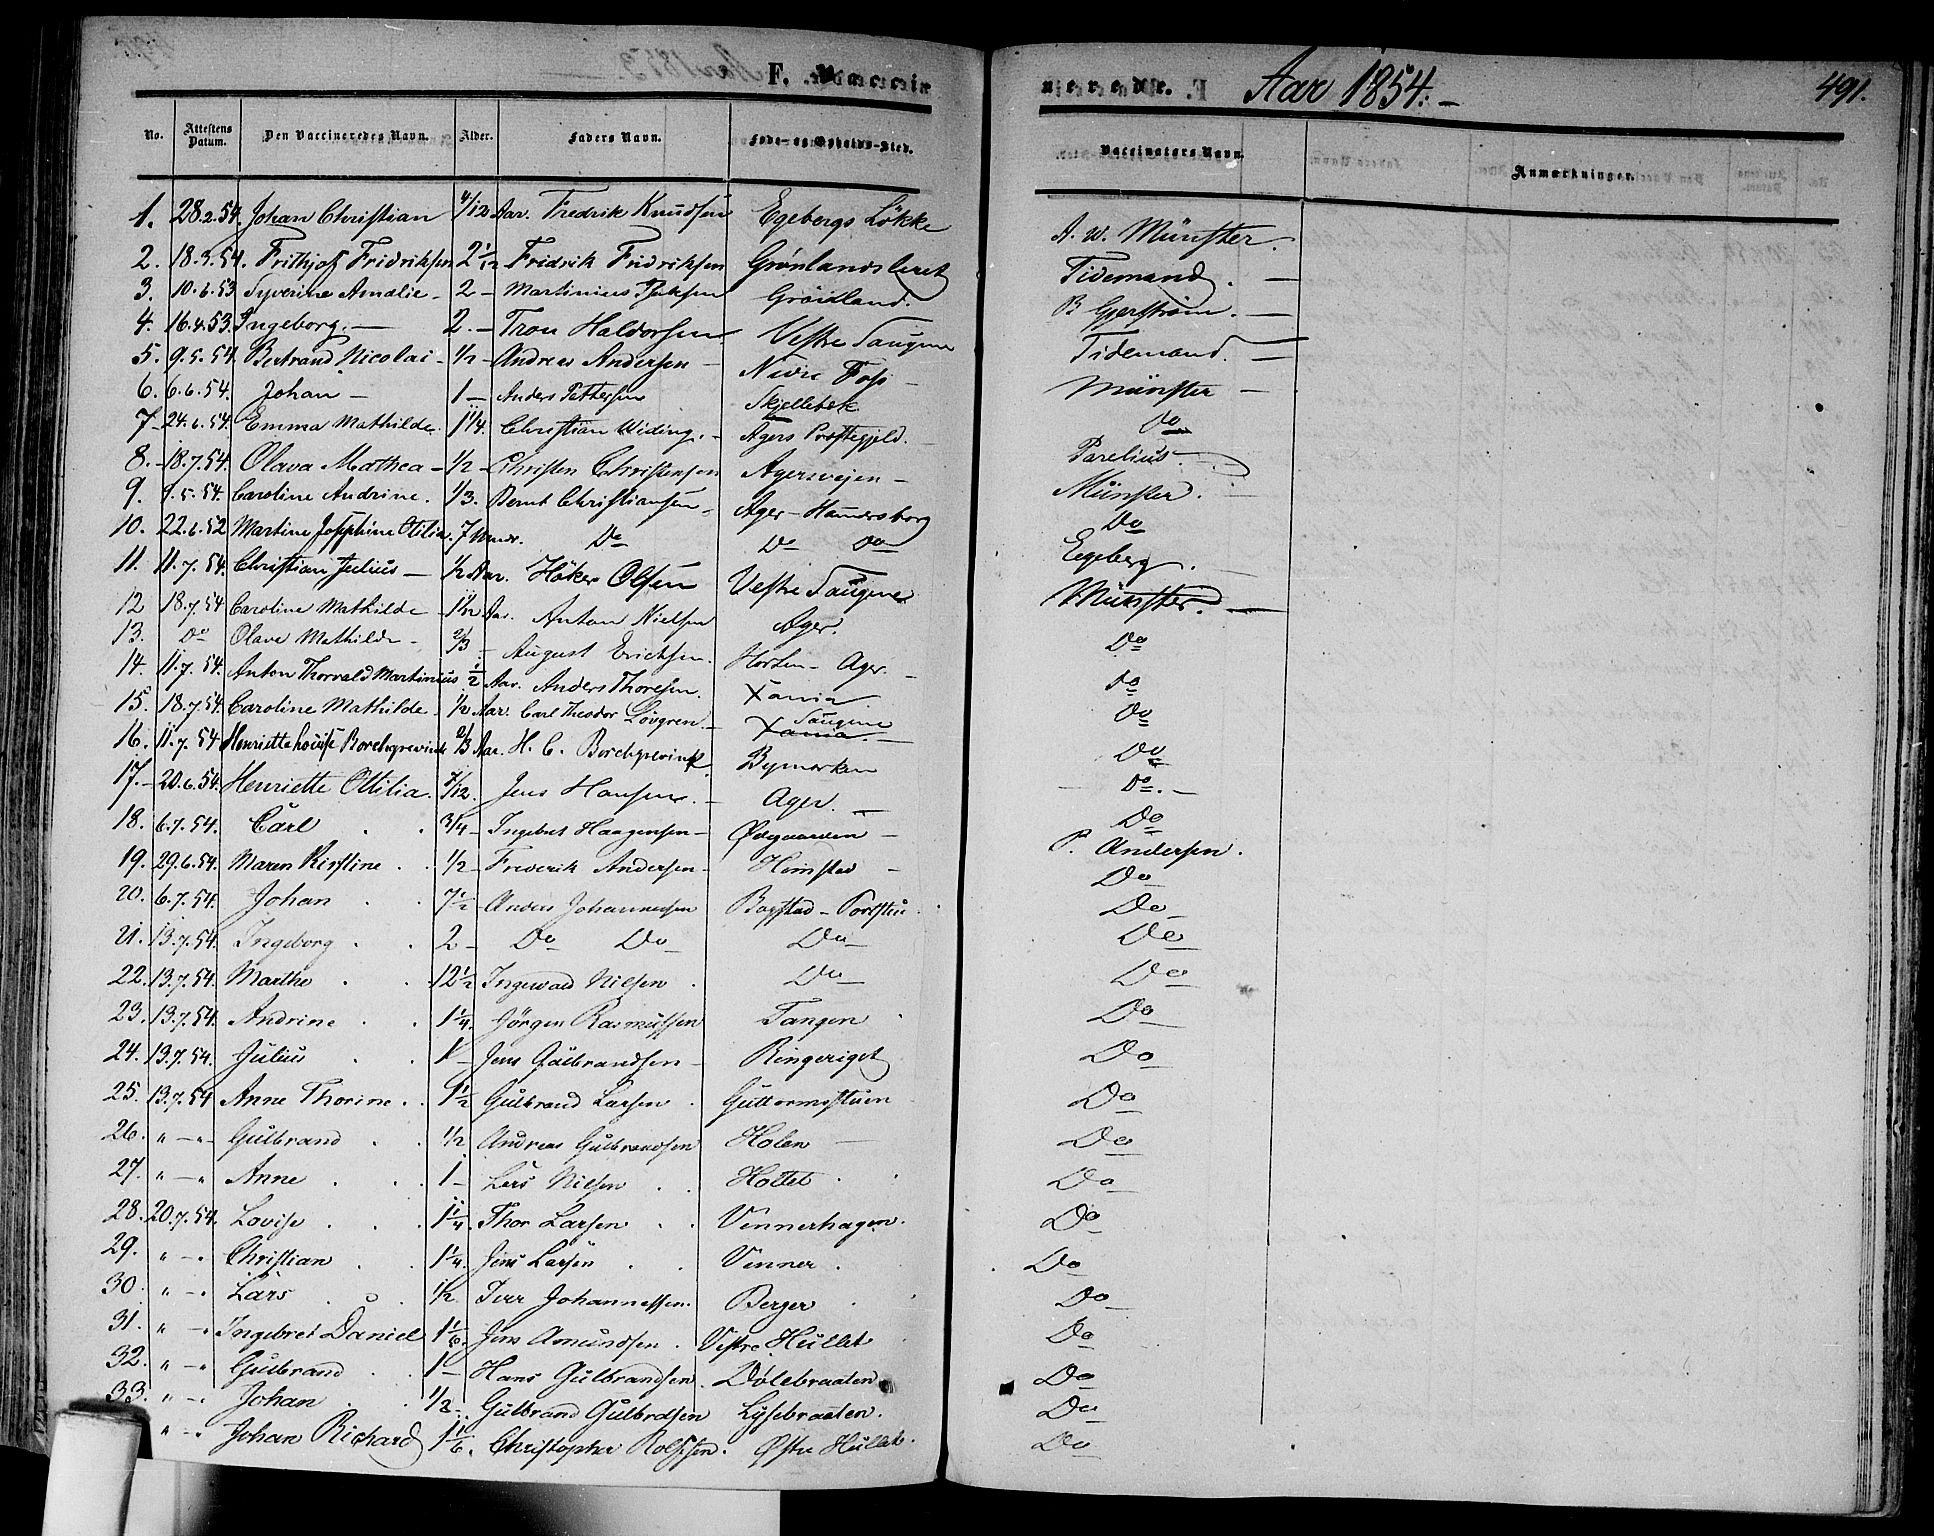 F. Vaccinerede. Aar 1854.- 491.
No. Attestens Datum. Den Vaccineredes Navn. Alder. Faders Navn. Føde- og Opholds-Sted. Vaccinators Navn. Anmærkninger.
1. 28.2.54. Johan Christian 4/12 Aar. Fredrik Knudsen Egebergs Løkke A. W. Münster. -
2. 18.3.54. Frithjof Fridriksen 2 1/12 Fridrik Fridriksen Grønlandsleret Tidemand. -
3. 10.6.53 Syverine Amalie - 2 - Martinius Grønland. B Gjerstrøm. -
4. 16.4.53. Ingeborg. - 2. - Tron Haldorsen Vestre Saugene Tidemand. -
5. 9.5.54. Bertrand Nicolai - 1/2 - Andreas Andersen - Nedre Foss - Münster -
6. 6.6.54. Johan - 1 - Anders Pettersen Skjellebek Do
7 - 24.6.54. Emma Mathilde. 1 1/4. Christian Widing. - Agers Præstegjeld. - Parelius. -
8. - 18.7.54. Olava Mathea - 1/2 - Christen Christensen Agersvejen - Münster. -
9. 9.5.54. Caroline Andrine. 1/3. Bernt Christiansen - Ager - Hamersborg Do
10. 22.6.52 Martine Josephine Otilia. 7 Mndr. Do Do Do Egeberg. -
11. 11.7.54. Christian Julius - 1/2 Aar. Høker Olsen Vestre Saugene Münster. -
12 18.7.54 Caroline Mathilde - 1 1/12 Aar. Anton Nielsen Ager. Do
13. Do Olave Mathilde - 2/3 - August Erichsen. Horten - Ager. - Do
14. 11.7.54. Anton Thorvald Martinius. 1/2 Aar. Anders Thoresen. Xania. Do
15. 18.7.54. Caroline Mathilde - 1/2 Aar. Carl Theodor Løvgren. - Saugene Xania. - Do
16. 11.7.54. Henriette Louise Borchgrevink 2/3 Aar. H. C. Borchgrevink. Bymarken - Do. -
17. - 20.6.54. Henriette Ottilia. 7/12. Jens Hansen. - Ager. - Do
18. 6.7.54. Carl . . 3/4 - Ingebret Haagensen - Ødegaarden - P. Andersen.
19. 29.6.54. Maren Kirstine . . 1/2 - Frederik Andersen - Heimstad - Do
20. 6.7.54. Johan . . 7 1/2 - Anders Johannesen Bogstad - Portstu . Do
21. 13.7.54. Ingeborg . . 2 - Do Do Do Do
22. 13.7.54. Marthe . . 12 1/2 Ingevald Nilsen . Do Do
23. 13.7.54. Andrine . . 1 1/4. Jörgen Rasmussen Tangen . Do
24. 13.7.54. Julius . . 1 - Jens Gulbrandsen - Ringeriget Do
25. 13.7.54 Anne Thorine . . 1 1/2 Gulbrand Larsen . Guttormstuen Do
26. " - " - Gulbrand . . 1/2 Andreas Gulbrandsen Holen - Do
27. " - " Anne . . . 1 - Lars Nilsen . . Holtet . . Do
28. 20.7.54. Lovise . . . 1 1/4. Thor Larsen . . Vennerhagen. Do
29. " - " Christian . . 1 1/4. Jens Larsen . . Venner . . Do
30. " - " Lars . . . 1/2 Iver Johannessen. Berger . . Do
31. " - " Ingebret Daniel 1 1/6. Jens Amundsen . Vestre Hullet Do
32. " - " Gulbrand . . 1 - Hans Gulbrandsen . Dölebraaten Do
33. " - " Johan . . 1/2 - Gulbrand Gulbrdsen Lysebraaten. Do
" - " Johan Richard 1 1/6. Christopher Rolfsen. Østre Hullet. Do